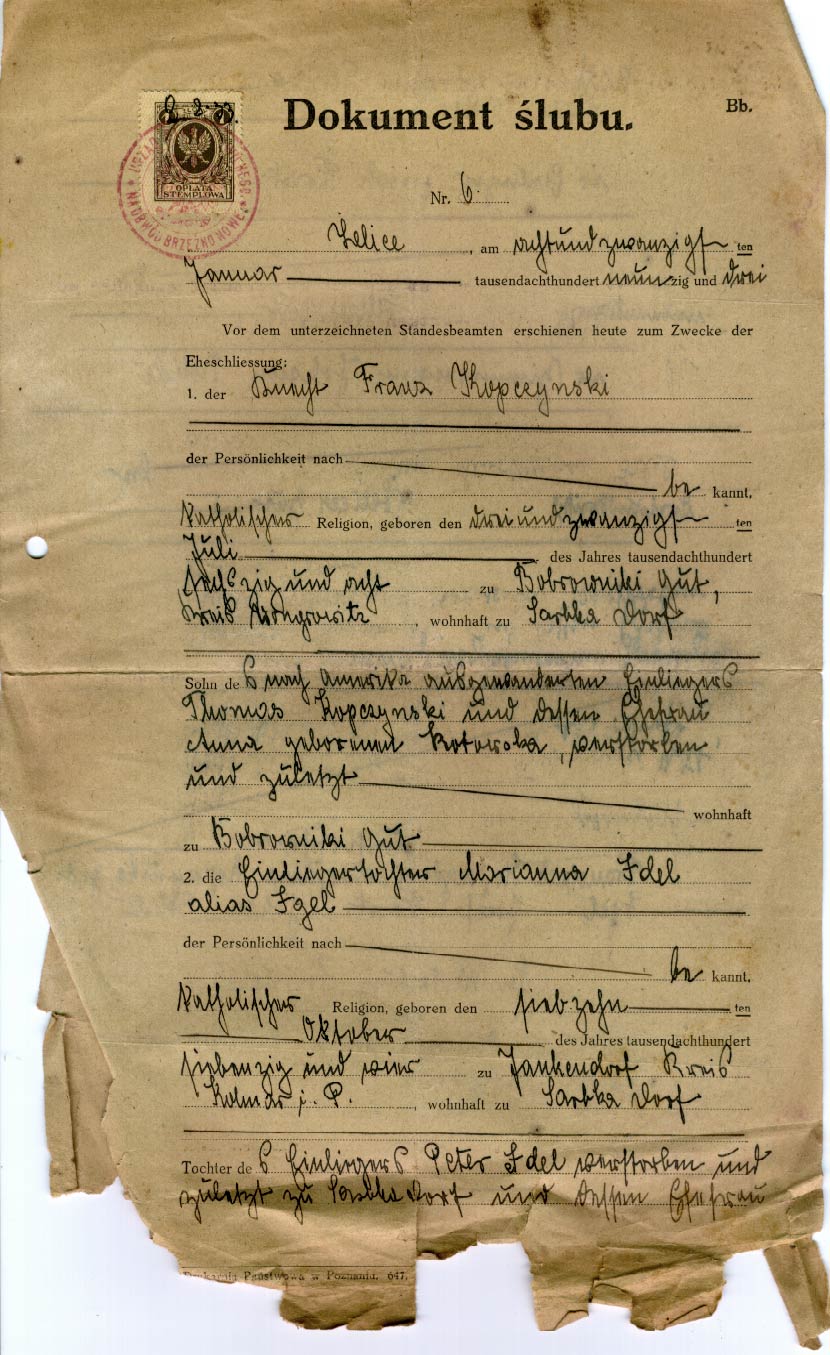 Dokument ślubu.
Bb.
OPŁATA
STEMPLOWA
NADBWÓD BRZEŹNO NOWE
Nr. 6.
Zelice, am achtundzwanzigsten
Januar tausendachthundert neunzig und drei
Vor dem unterzeichneten Standesbeamten erschienen heute zum Zwecke der
Eheschliessung:
1. der Knecht Franz Kopczynski
der Persönlichkeit nach
be kannt,
katholischer Religion, geboren den dreiundzwanzigsten
Juli des Jahres tausendachthundert
sechszig und acht zu Bobrowniki Gut,
Kreis Wongrowitz, wohnhaft zu Sarbka Dorf
Sohn des nach Amerika ausgewanderten Einliegers
Thomas Kopczynski und dessen Ehefrau
Anna geborenen Kotowska, verstorben
und zuletzt
wohnhaft
zu Bobrowniki Gut
2. die Einliegertochter Marianna Idel
alias Igel
der Persönlichkeit nach
be kannt,
katholischer Religion, geboren den siebzehnten
Oktober des Jahres tausendachthundert
siebenzig und vier zu Jankendorf Kreis
Kolmar i. P., wohnhaft zu Sarbka Dorf
Tochter des Einliegers Peter Idel verstorben und
zuletzt zu Sarbka Dorf und dessen Ehefrau
Drukarnia Państwowa w Poznaniu. 647.